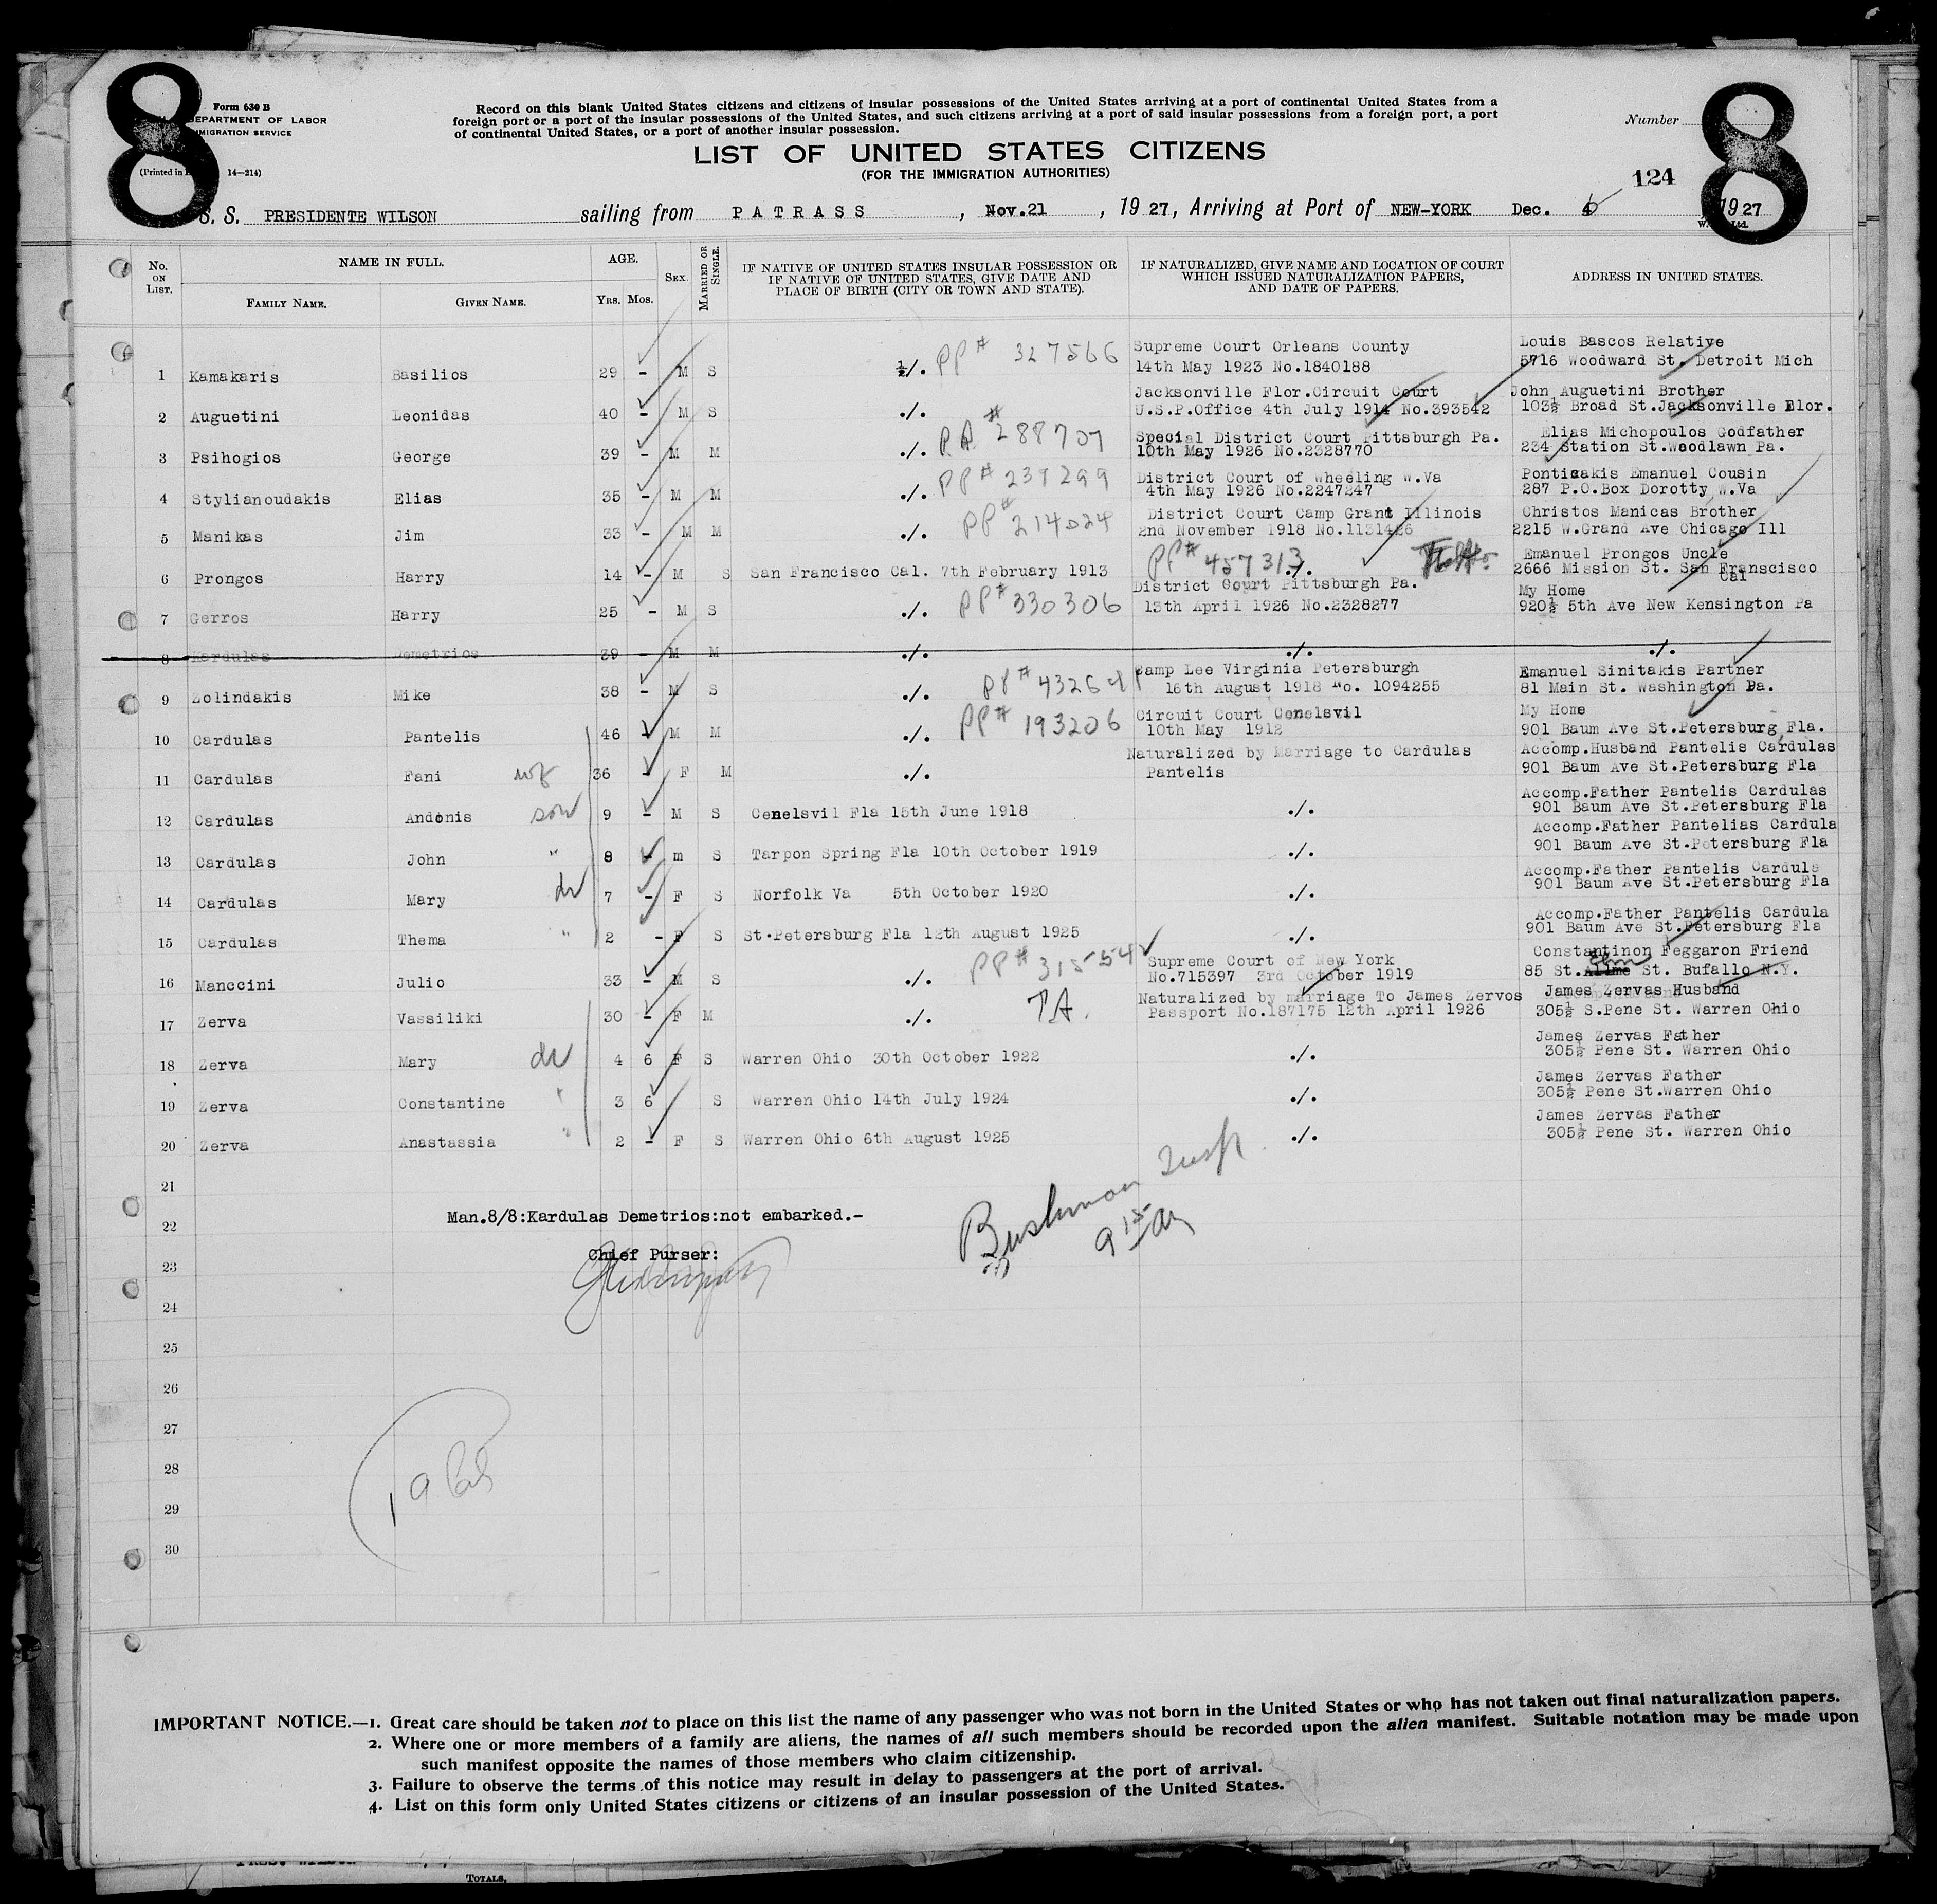 8
8
Form 630 B
DEPARTMENT OF LABOR
IMMIGRATION SERVICE
(Printed in
14—214)
Record on this blank United States citizens and citizens of insular possessions of the United States arriving at a port of continental United States from a
foreign port or a port of the insular possessions of the United States, and such citizens arriving at a port of said insular possessions from a foreign port, a port
of continental United States, or a port of another insular possession.
Number
LIST OF UNITED STATES CITIZENS
(FOR THE IMMIGRATION AUTHORITIES)
124
S. S. PRESIDENTE WILSON sailing from PATRASS, Nov.21, 1927, Arriving at Port of NEW-YORK Dec. 6 1927
Ltd.
No. ON LIST. NAME IN FULL. AGE. SEX. MARRIED OR SINGLE. IF NATIVE OF UNITED STATES INSULAR POSSESSION OR IF NATIVE OF UNITED STATES, GIVE DATE AND PLACE OF BIRTH (CITY OR TOWN AND STATE). IF NATURALIZED, GIVE NAME AND LOCATION OF COURT WHICH ISSUED NATURALIZATION PAPERS, AND DATE OF PAPERS. ADDRESS IN UNITED STATES.
FAMILY NAME. GIVEN NAME. YRS. MOS.
Supreme Court Orleans County Louis Bascos Relative
1 Kamakaris Basilios 29 - M S ./. PP# 327566 14th May 1923 No.1840188 5716 Woodward St. Detroit Mich
Jacksonville Flor.Circuit Court John Auguetini Brother
2 Auguetini Leonidas 40 - M S ./. U.S.P.Office 4th July 1914 No.393542 103½ Broad St.Jacksonville Flor.
Special District Court Pittsburgh Pa. Elias Michopoulos Godfather
3 Psihogios George 39 - M M ./. # 288707 10th May 1926 No.2328770 234 Station St.Woodlawn Pa.
District Court of Wheeling W.Va Ponticakis Emanuel Cousin
4 Stylianoudakis Elias 35 - M M ./. PP# 239299 4th May 1926 No.2247247 287 P.O.Box Dorotty W.Va
District Court Camp Grant Illinois Christos Manicas Brother
5 Manikas Jim 33 - M M ./. PP# 214024 2nd November 1918 No.1131426 2215 W.Grand Ave Chicago Ill
PP# 457313 Emanuel Prongos Uncle
6 Prongos Harry 14 - M S San Francisco Cal. 7th February 1913 ./. 2666 Mission St. San Franscisco
Cal
District Court Pittsburgh Pa. My Home
7 Gerros Harry 25 - M S ./. PP# 330306 13th April 1926 No.2328277 920½ 5th Ave New Kensington Pa
8 Kardulas Demetrios 39 - M M ./. ./. ./.
Camp Lee Virginia Petersburgh Emanuel Sinitakis Partner
9 Zolindakis Mike 38 - M S ./. PP# 16th August 1918 No. 1094255 81 Main St. Washington Pa.
Circuit Court Cenelsvil My Home
10 Cardulas Pantelis 46 - M M ./. PP# 193206 10th May 1912 901 Baum Ave St.Petersburg Fla.
Naturalized by Marriage to Cardulas Accomp.Husband Pantelis Cardulas
11 Cardulas Fani wf 36 - F M ./. Pantelis 901 Baum Ave St.Petersburg Fla
Accomp.Father Pantelis Cardulas
12 Cardulas Andonis son 9 - M S Cenelsvil Fla 15th June 1918 ./. 901 Baum Ave St.Petersburg Fla
Accomp.Father Pantelias Cardula
13 Cardulas John " 8 - m S Tarpon Spring Fla 10th October 1919 ./. 901 Baum Ave St.Petersburg Fla
Accomp.Father Pantelis Carduls
14 Cardulas Mary dr 7 - F S Norfolk Va 5th October 1920 ./. 901 Baum Ave St.Petersburg Fla
Accomp.Father Pantelis Cardula
15 Cardulas Thema " 2 - F S St.Petersburg Fla 12th August 1925 ./. 901 Baum Ave St.Petersburg Fla
Supreme Court of New York Constantinon Feggaron Friend
16 Manccini Julio 33 - M S ./. PP# 315542 No.715397 3rd October 1919 85 St. St. Bufallo N.Y.
Naturalized by marriage To James Zervos James Zervas Husband
17 Zerva Vassiliki 30 - F M ./. Passport No.187175 12th April 1926 305½ S.Pene St. Warren Ohio
James Zervas Father
18 Zerva Mary dr 4 6 F S Warren Ohio 30th October 1922 ./. 305½ Pene St. Warren Ohio
James Zervas Father
19 Zerva Constantine " 3 6 S Warren Ohio 14th July 1924 ./. 305½ Pene St.Warren Ohio
James Zervas Father
20 Zerva Anastassia " 2 - F S Warren Ohio 6th August 1925 ./. 305½ Pene St. Warren Ohio
21
22 Man.8/8:Kardulas Demetrios:not embarked.-
Chief Purser:
23
Bushman Insp
24
25
26
27
28
29
30
IMPORTANT NOTICE.—1. Great care should be taken not to place on this list the name of any passenger who was not born in the United States or who has not taken out final naturalization papers.
2. Where one or more members of a family are aliens, the names of all such members should be recorded upon the alien manifest. Suitable notation may be made upon
such manifest opposite the names of those members who claim citizenship.
3. Failure to observe the terms of this notice may result in delay to passengers at the port of arrival.
4. List on this form only United States citizens or citizens of an insular possession of the United States.
TOTALS,